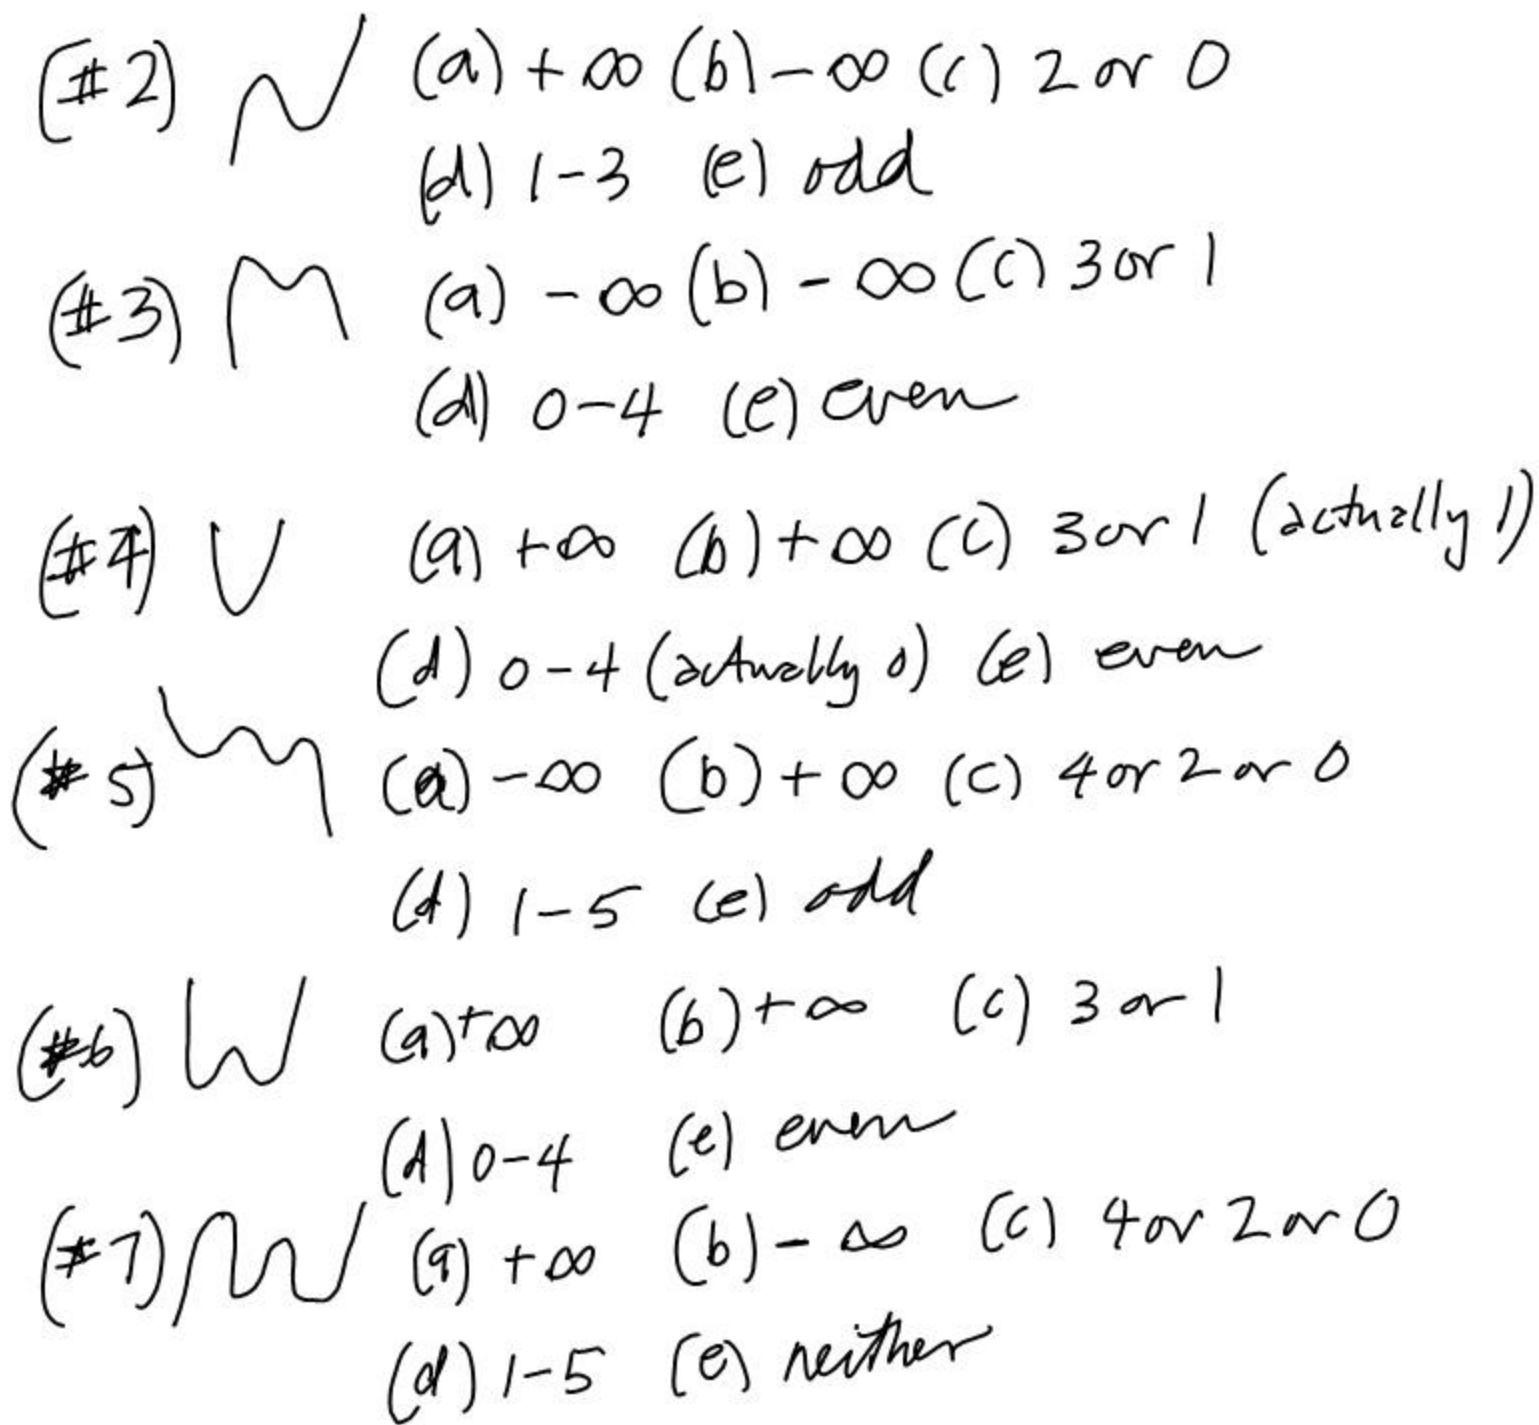 (#2) (a) +∞ (b) -∞ (c) 2 or 0
(d) 1-3 (e) odd
(#3) (a) -∞ (b) -∞ (c) 3 or 1
(d) 0-4 (e) even
(#4) (a) +∞ (b) +∞ (c) 3 or 1 (actually 1)
(d) 0-4 (actually 0) (e) even
(#5) (a) -∞ (b) +∞ (c) 4 or 2 or 0
(d) 1-5 (e) odd
(#6) (a) +∞ (b) +∞ (c) 3 or 1
(d) 0-4 (e) even
(#7) (a) +∞ (b) -∞ (c) 4 or 2 or 0
(d) 1-5 (e) neither